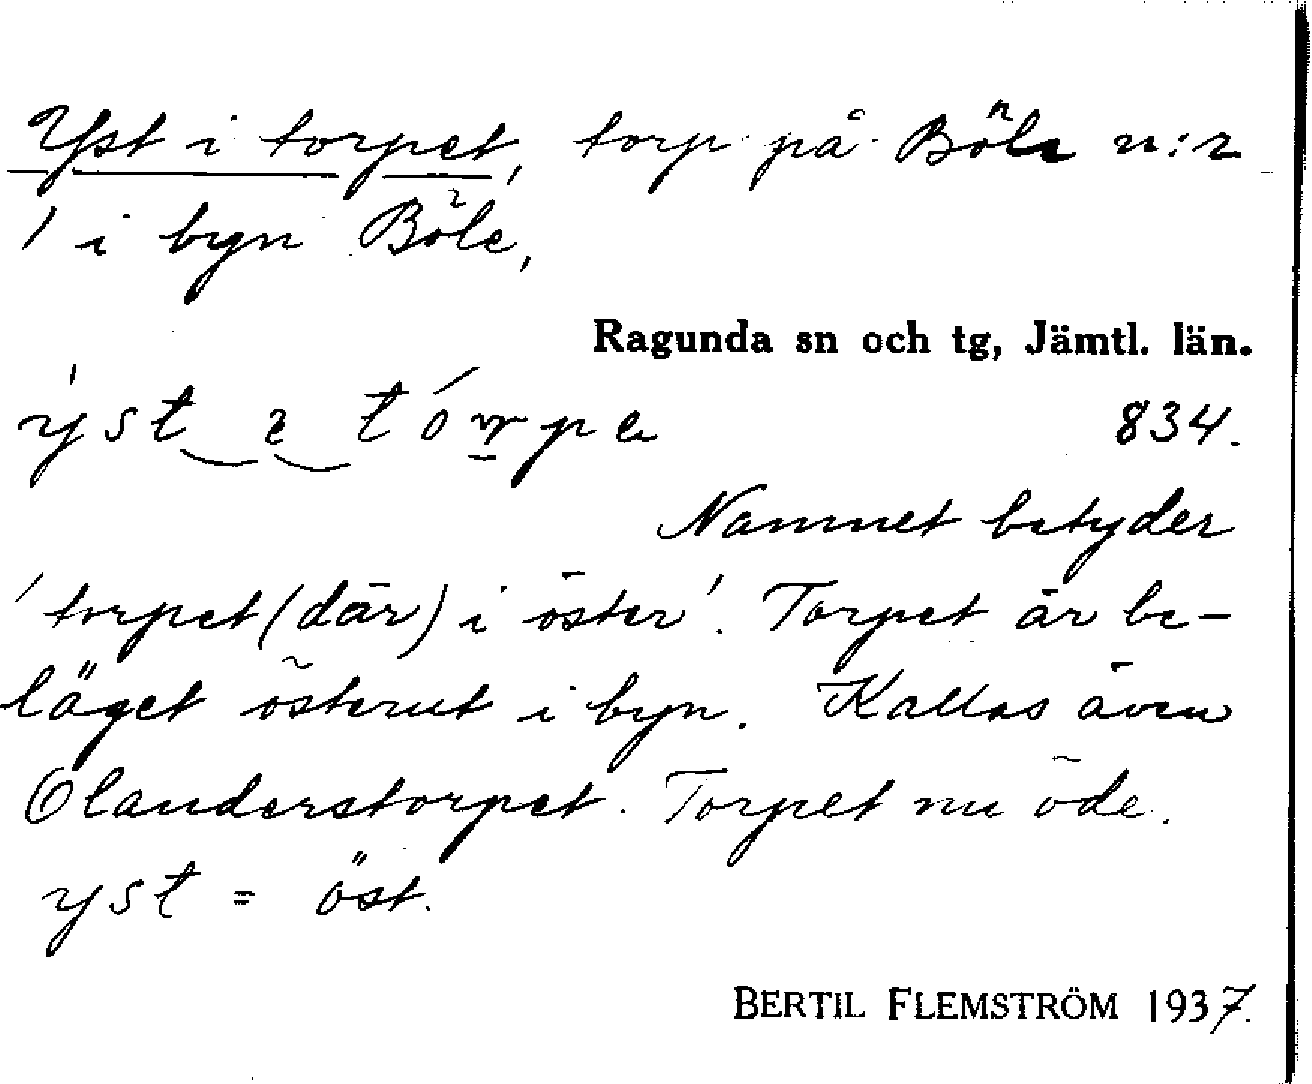 Yst i torpet, torp på Böle n:r
1 i byn Böle,
Ragunda sn och tg, Jämtl. län.
834.
Namnet betyder
'torpet (där) i öster'. Torpet är be-
läget österut i byn. Kallas även
Olanderstorpet. Torpet nu öde.
yst = öst.
BERTIL FLEMSTRÖM 1937.